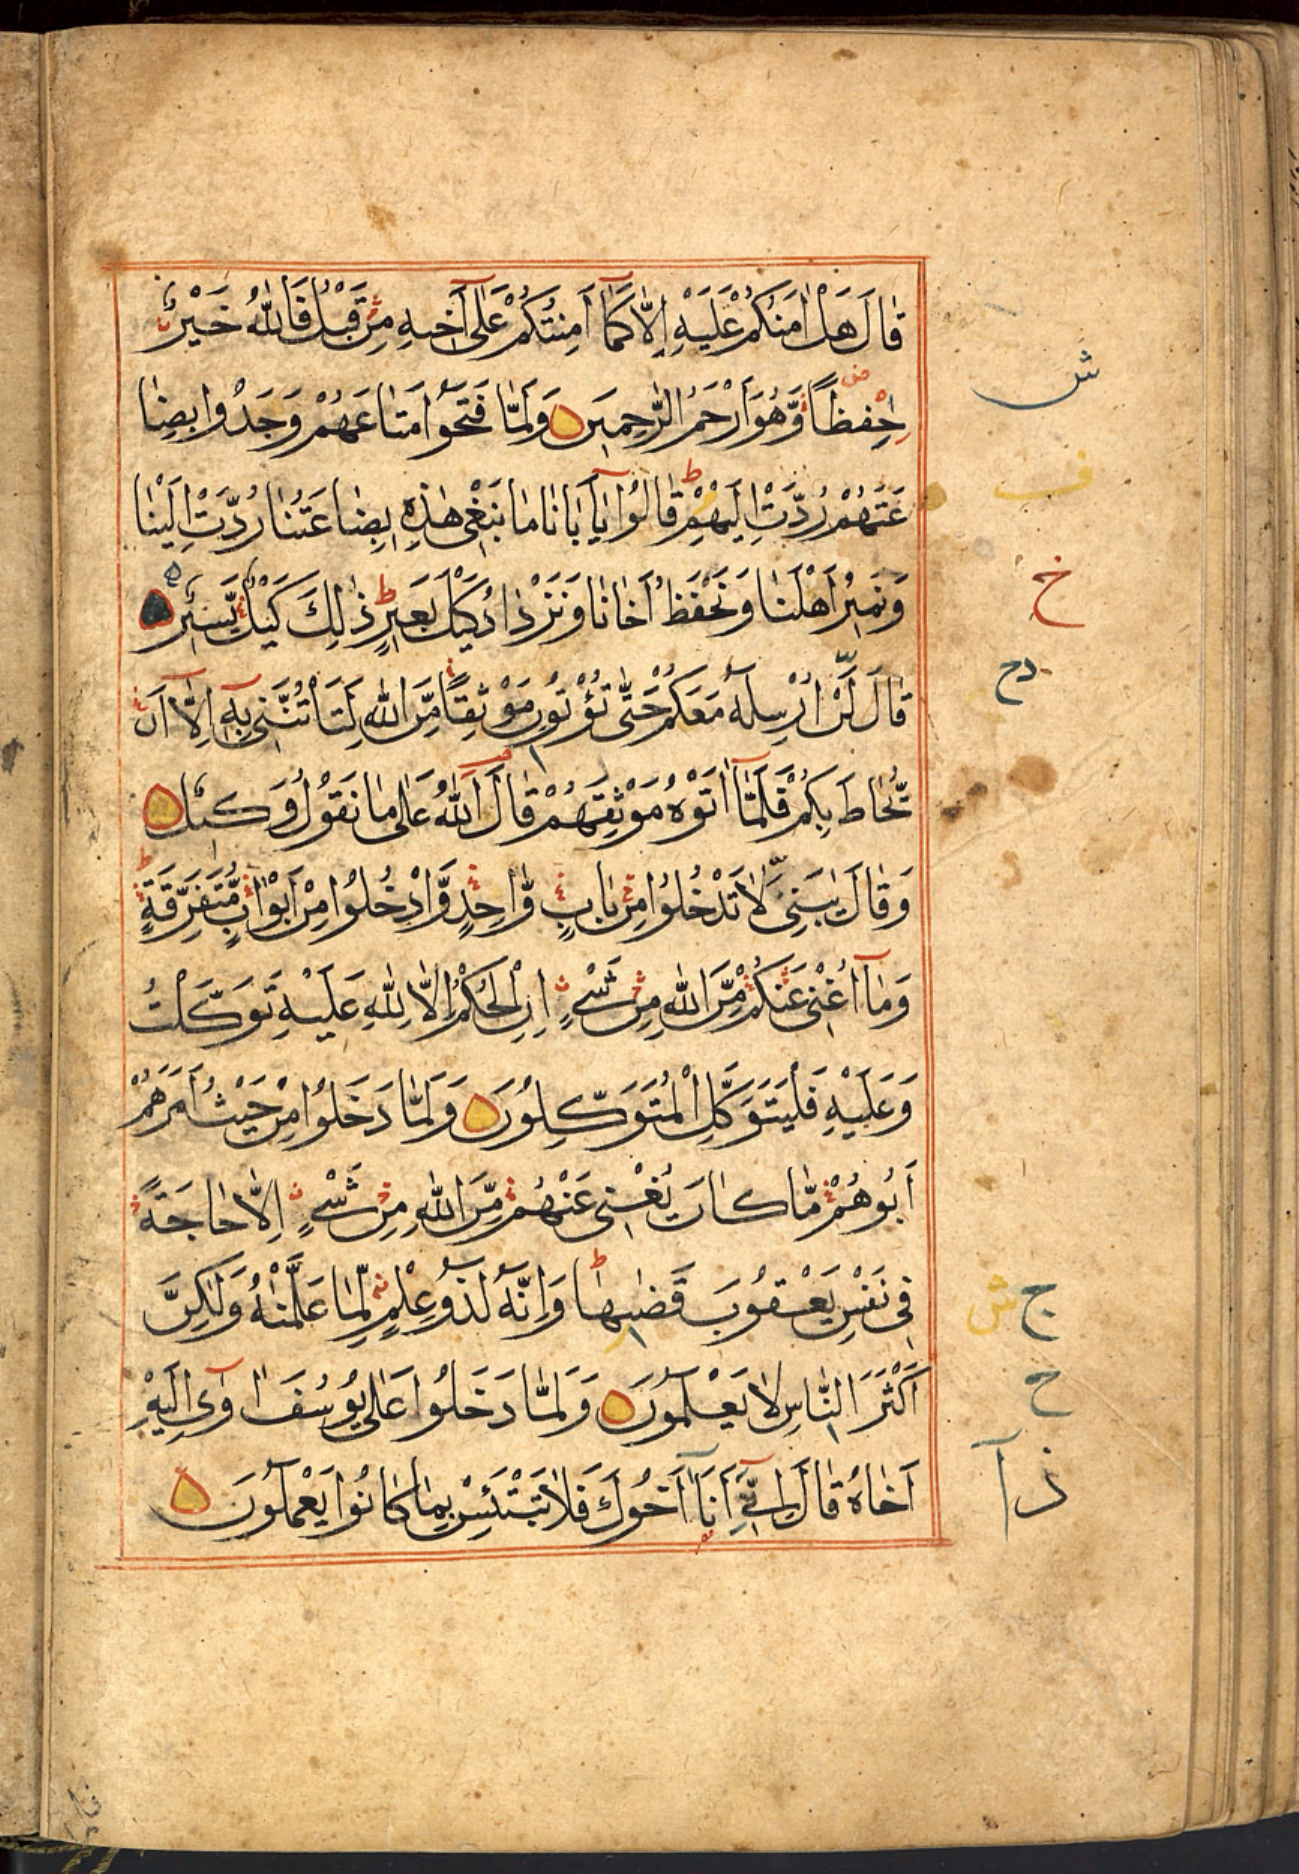 قَالَ هَلْ اٰمَنُكُمْ عَلَيْهِ اِلَّا كَمَٓا اَمِنْتُكُمْ عَلٰٓى اَخِيهِ مِنْ قَبْلُ فَاللّٰهُ خَيْرٌ
حٰفِظًا وَّهُوَ اَرْحَمُ الرّٰحِمِيْنَ وَلَمَّا فَتَحُوْا مَتَاعَهُمْ وَجَدُوا بِضَا
عَتَهُمْ رُدَّتْ اِلَيْهِمْ قَالُوْا يَآ اَبَانَا مَا نَبْغِى هٰذِهِ بِضَاعَتُنَا رُدَّتْ اِلَيْنَا
وَنَمِيْرُ اَهْلَنَا وَنَحْفَظُ اَخَانَا وَنَزْدَادُ كَيْلَ بَعِيرٍ ذٰلِكَ كَيْلٌ يَّسِيْرٌ
قَالَ لَنْ اُرْسِلَهُ مَعَكُمْ حَتّٰى تُؤْتُوْنِ مَوْثِقًا مِّنَ اللّٰهِ لَتَأْتُنَّنِى بِهٖٓ اِلَّآ اَنْ
يُّحَاطَ بِكُمْ فَلَمَّآ اٰتَوْهُ مَوْثِقَهُمْ قَالَ اللّٰهُ عَلٰى مَا نَقُوْلُ وَكِيْلٌ
وَقَالَ يٰبَنِىَّ لَا تَدْخُلُوْا مِنْ بَابٍ وَّاحِدٍ وَّادْخُلُوْا مِنْ اَبْوَابٍ مُّتَفَرِّقَةٍ
وَمَآ اُغْنِى عَنْكُمْ مِّنَ اللّٰهِ مِنْ شَىْءٍ اِنِ الْحُكْمُ اِلَّا لِلّٰهِ عَلَيْهِ تَوَكَّلْتُ
وَعَلَيْهِ فَلْيَتَوَكَّلِ الْمُتَوَكِّلُوْنَ وَلَمَّا دَخَلُوْا مِنْ حَيْثُ اَمَرَهُمْ
اَبُوْهُمْ مَّا كَانَ يُغْنِى عَنْهُمْ مِّنَ اللّٰهِ مِنْ شَىْءٍ اِلَّا حَاجَةً
فِى نَفْسِ يَعْقُوْبَ قَضٰيهَا وَاِنَّهٗ لَذُوْ عِلْمٍ لِّمَا عَلَّمْنٰهُ وَلٰكِنَّ
اَكْثَرَ النَّاسِ لَا يَعْلَمُوْنَ وَلَمَّا دَخَلُوْا عَلٰى يُوْسُفَ اٰوٰٓى اِلَيْهِ
اَخَاهُ قَالَ اِنِّىٓ اَنَا۬ اَخُوْكَ فَلَا تَبْتَئِسْ بِمَا كَانُوْا يَعْمَلُوْنَ
ش
ف
خ
دح
ج ش
ح